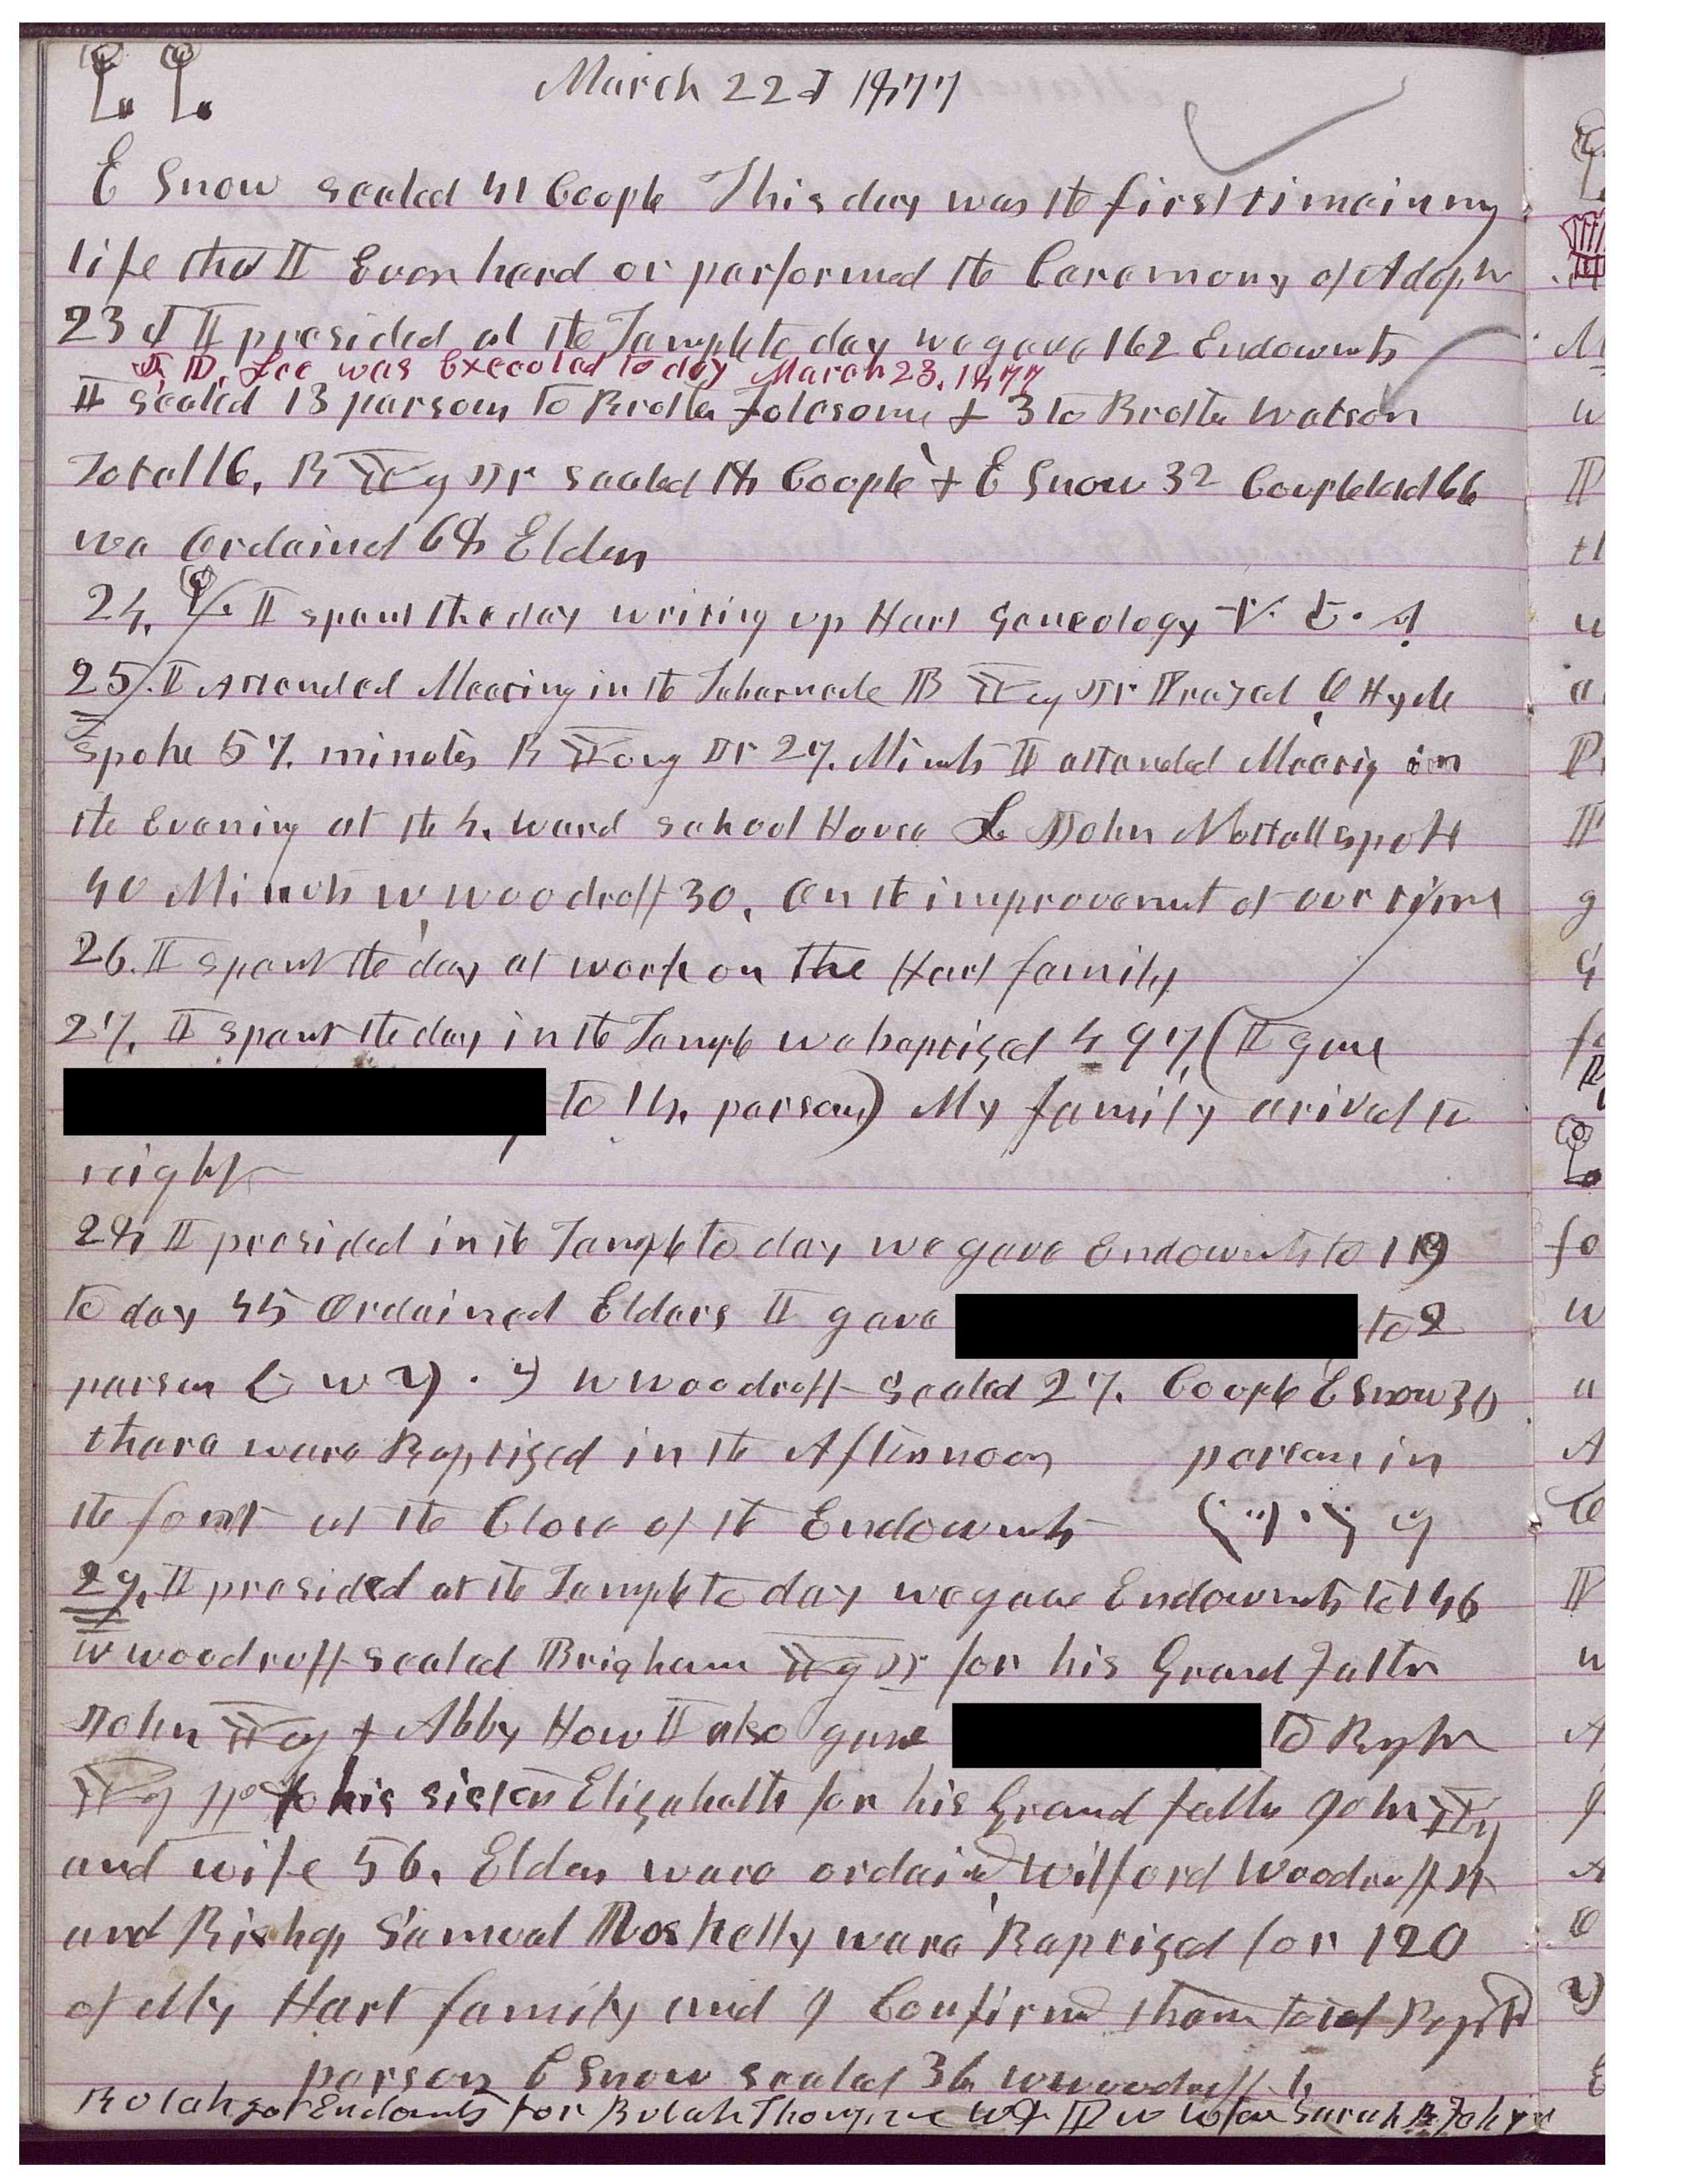 March 22d 1877
E Snow sealed 41 Coople This day was the first time in my
life that I Ever hard or performed the Ceremony of Adopt
23d I presided at the Temple to day we gave 162 Endowmts
J D. Lee was Executed to day March 23. 1877
I Sealed 13 persons to Brother Folesome & 3 to Brother Watson
Total 16. B Yg Jr sealed 18 Coople & E Snow 32 Couple total 66
we Ordained 68 Elders
24. I spent the day writing up Hart Geneology
25. I Attended Meeting in the Tabernacle B Yg Jr Prayed O Hyde
spoke 57 minutes B Young Jr 27. Minuts I attended Meeting in
the Evening at the 4. Ward school House John Nuttall spoke
40 Minuts W Woodruff 30. On the improvemnt of our time
26. I spent the day at work on the Hart family
27. I spent the day in the Temple we baptized 497, (I gave
to 14, persons) My family arived to
night
28 I presided in the Temple to day we gave Endowmts to 119
to day 45 Ordained Elders I gave to 2
person W Woodruff Sealed 27. Coople E Snow 30
there were Baptized in the Afternoon person in
the font at the Close of the Endowmts
29. I presided at the Temple to day we gave Endowmts to 146
W Woodruff sealed Brigham Yg Jr for his Grand Father
John Yg & Abby How I also gave to Bryhm
Yg Jr & his sister Elizabeth for his Grand father John Yg
and wife 56. Elders were ordaind, Wilford Woodruff Jr
and Bishop Samuel Roskelly were Baptized for 120
of My Hart family and I Confirmd them total Baptd
person E Snow sealed 36 W Woodruff 4,
Bulah got Endowmts for Bulah Thompson